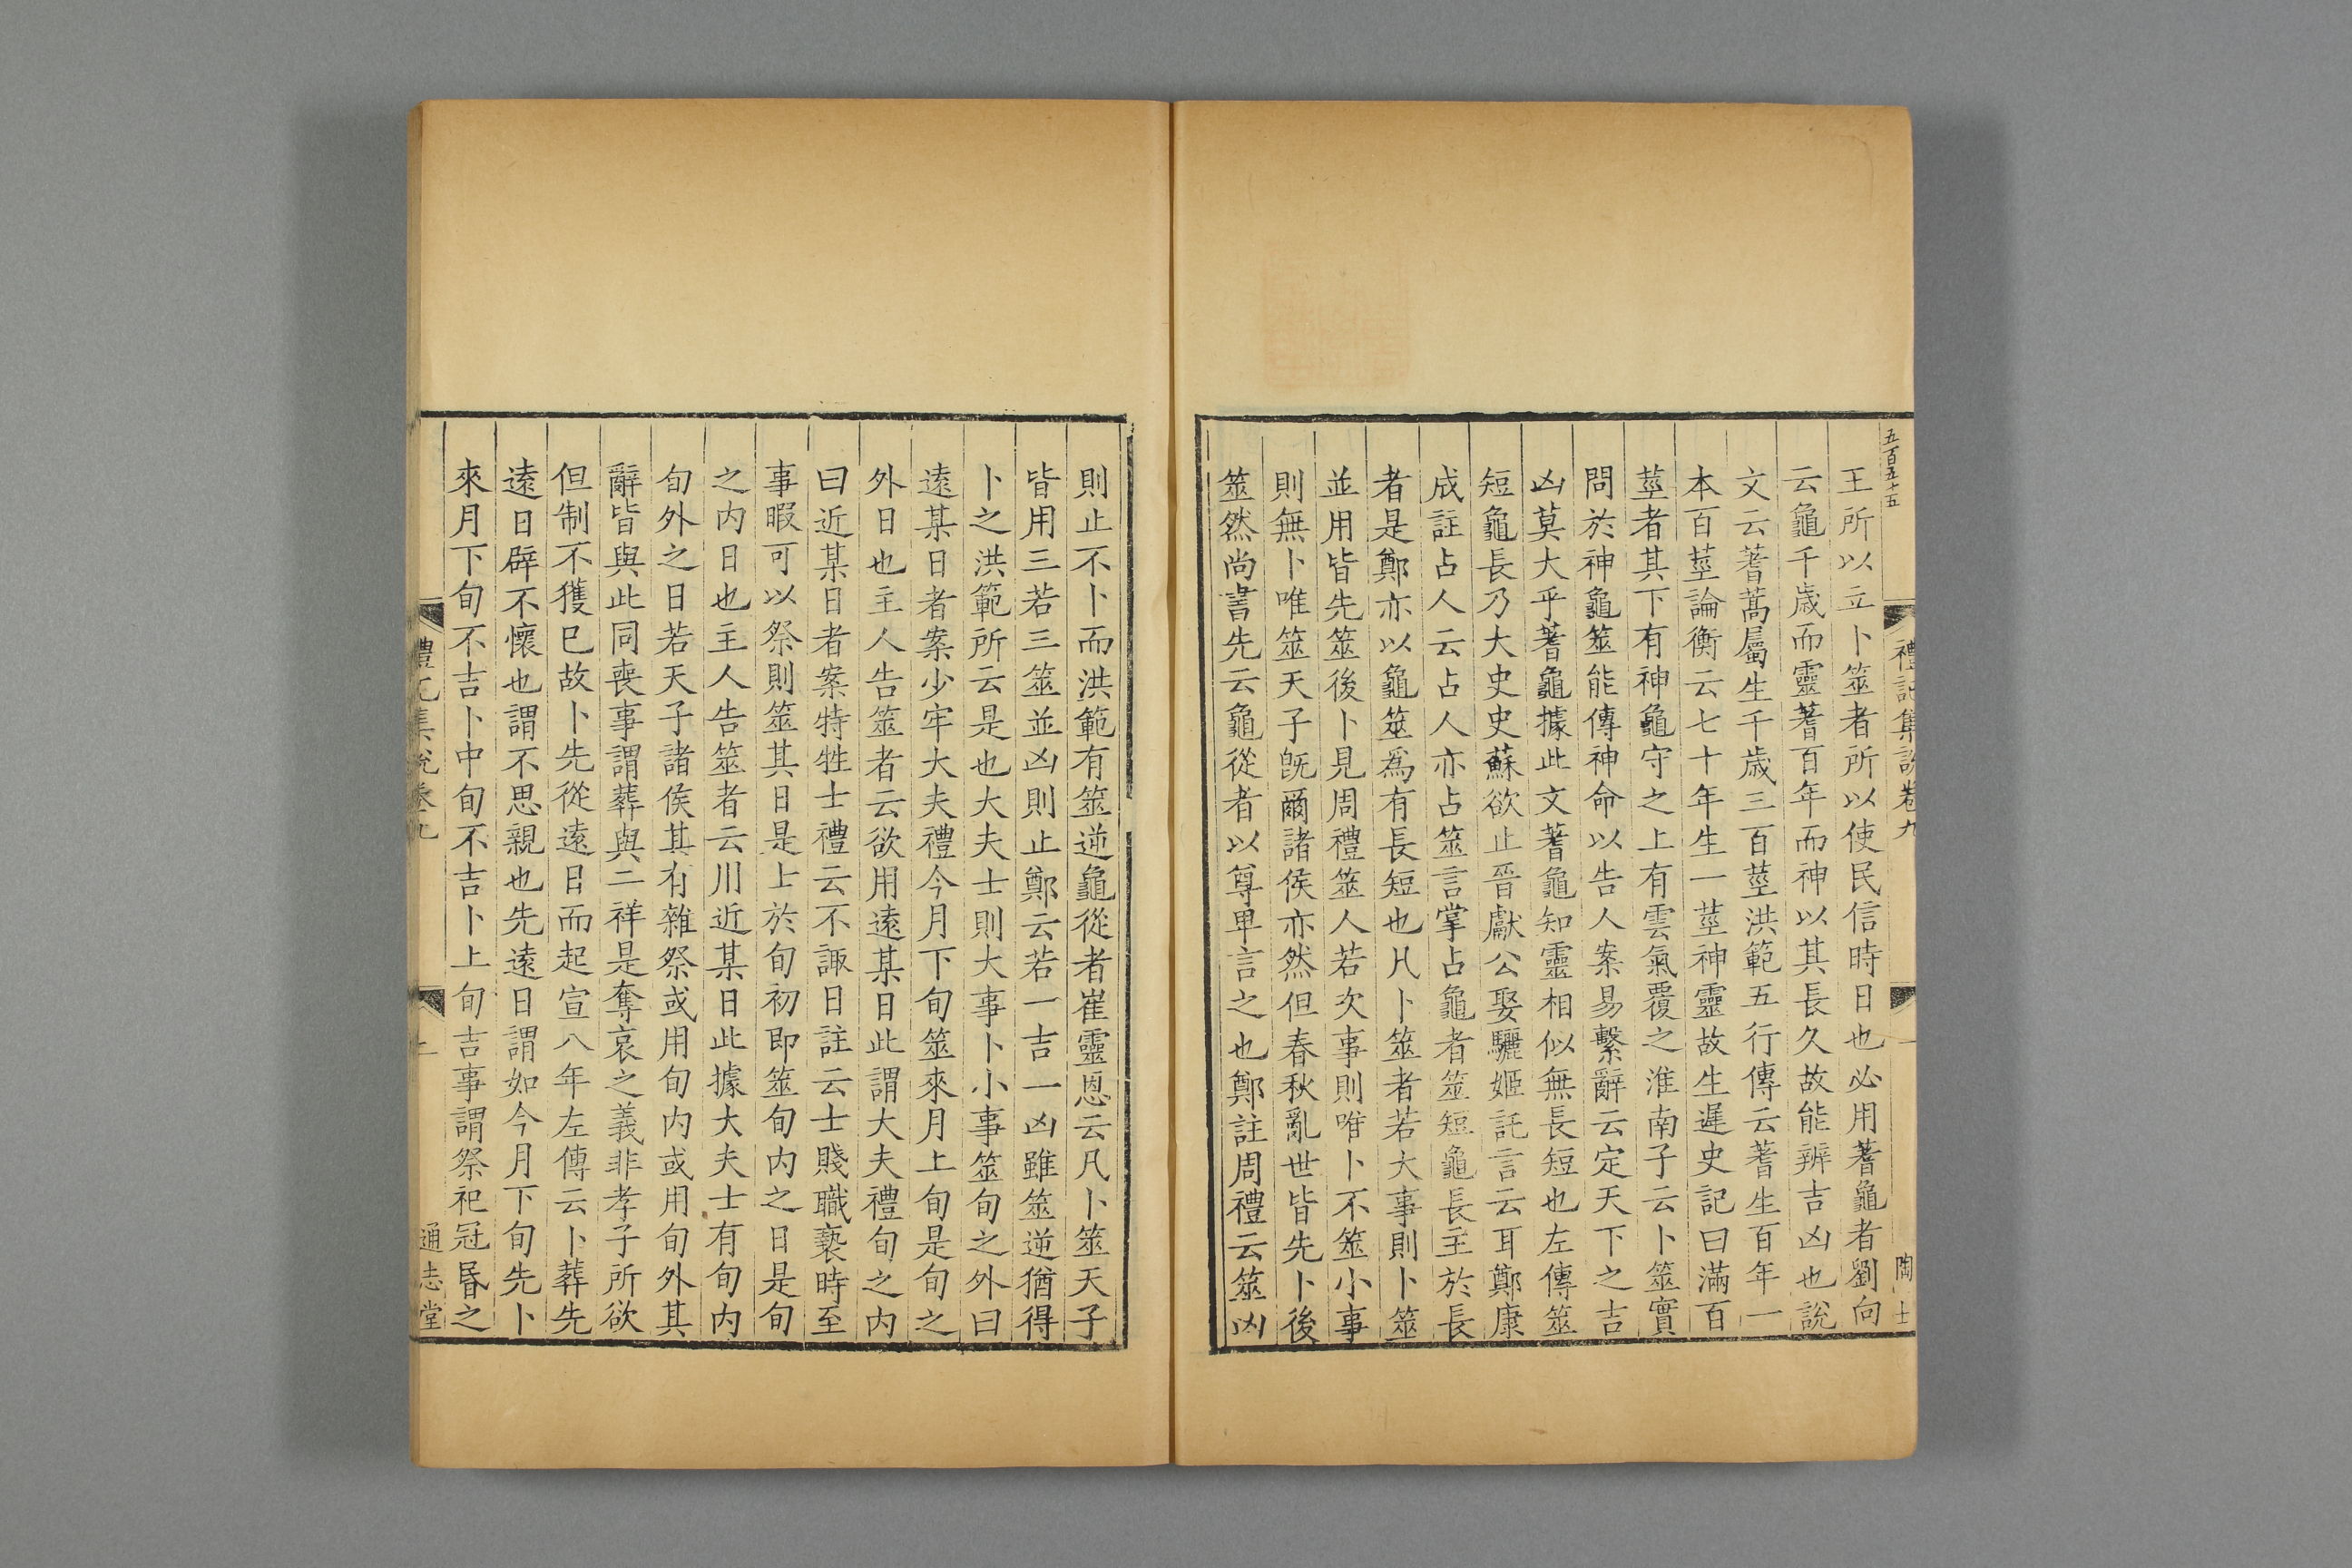 五百五十五
禮記集說卷九
陶士
王所以立卜筮者所以使民信時日也必用蓍龜者劉向
云龜千歲而靈蓍百年而神以其長久故能辨吉凶也說
文云蓍蒿屬生千歲三百莖洪範五行傳云蓍生百年一
本百莖論衡云七十年生一莖神靈故生遲史記曰滿百
莖者其下有神龜守之上有雲氣覆之淮南子云卜筮實
問於神龜筮能傳神命以告人案易繫辭云定天下之吉
凶莫大乎蓍龜據此文蓍龜知靈相似無長短也左傳筮
短龜長乃大史史蘇欲止晉獻公娶驪姬託言云耳鄭康
成註占人云占人亦占筮言掌占龜者筮短龜長主於長
者是鄭亦以龜筮爲有長短也凡卜筮者若大事則卜筮
並用皆先筮後卜見周禮筮人若次事則唯卜不筮小事
則無卜唯筮天子旣爾諸侯亦然但春秋亂世皆先卜後
筮然尚書先云龜從者以尊卑言之也鄭註周禮云筮凶
則止不卜而洪範有筮逆龜從者崔靈恩云凡卜筮天子
皆用三若三筮並凶則止鄭云若一吉一凶雖筮逆猶得
卜之洪範所云是也大夫士則大事卜小事筮旬之外曰
遠某日者案少牢大夫禮今月下旬筮來月上旬是旬之
外日也主人告筮者云欲用遠某日此謂大夫禮旬之內
曰近某日者案特牲士禮云不諏日註云士賤職褻時至
事暇可以祭則筮其日是上於旬初即筮旬內之日是旬
之內日也主人告筮者云川近某日此據大夫士有旬內
旬外之日若天子諸侯其有雜祭或用旬內或用旬外其
辭皆與此同喪事謂葬與二祥是奪哀之義非孝子所欲
但制不獲已故卜先從遠日而起宣八年左傳云卜葬先
遠日辟不懷也謂不思親也先遠日謂如今月下旬先卜
來月下旬不吉卜中旬不吉卜上旬吉事謂祭祀冠昏之
禮記集說卷九
通志堂